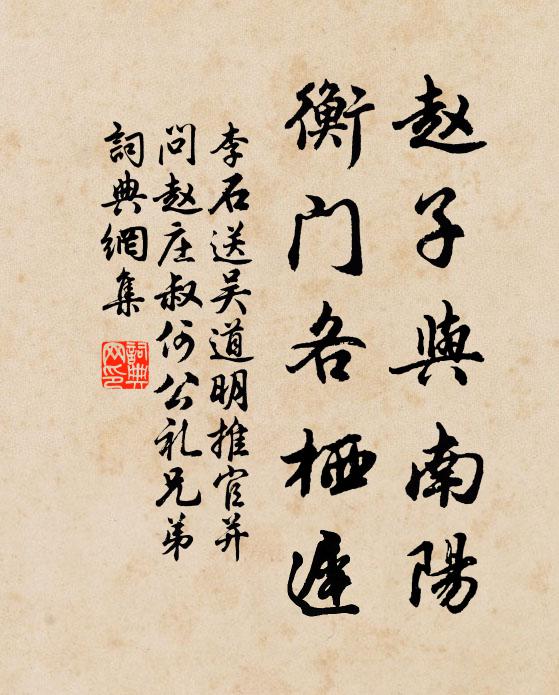 赵子與南陽
衡门各栖遲
李石送吴道明推官并
问赵庄叔何公礼兄弟
詞典網集
詞典
网印